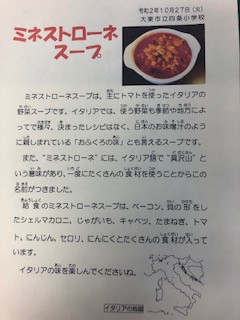 令和2年10月27日(火)
大東市立四条小学校
ミネストローネ
スープ
ミネストローネスープは、主にトマトを使ったイタリアの
野菜スープです。イタリアでは、使う野菜も季節や地方によ
ってで様々、決まったレシピはなく、日本のお味噌汁のよう
に親しまれている「おふくろの味」とも言えるスープです。
また、"ミネストローネ"には、イタリア語で"具沢山"と
いう意味があり、一度にたくさんの食材を使うことからこの
名前がつきました。
給食のミネストローネスープは、ベーコン、貝の形をし
たシェルマカロニ、じゃがいも、キャベツ、たまねぎ、トマ
ト、にんじん、セロリ、にんにくとたくさんの食材が入って
います。
イタリアの味を楽しんでくださいね。
イタリアの地図